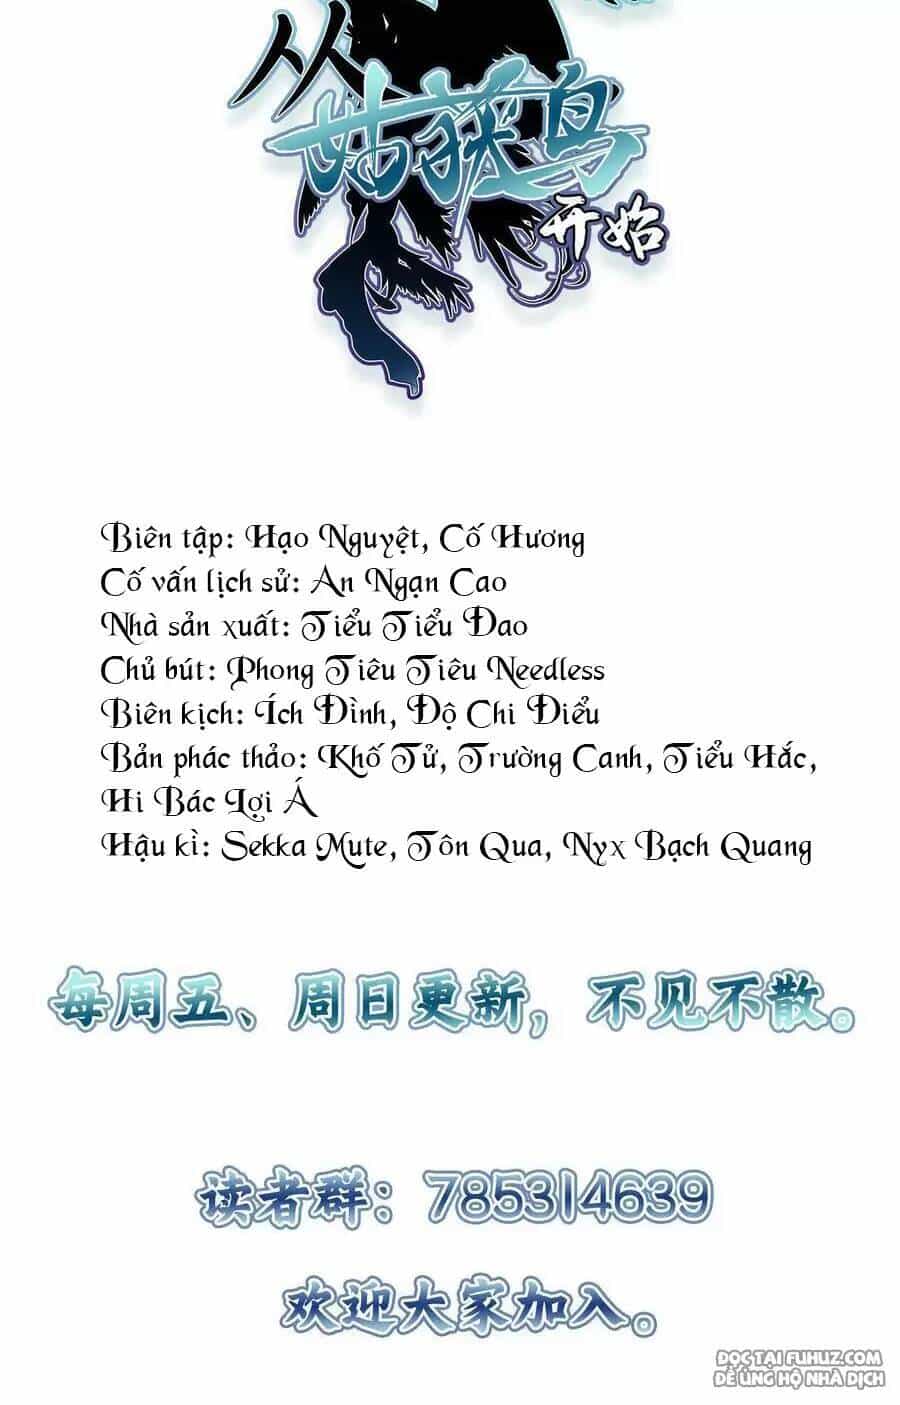 从
姑获鸟
开始
Biên tập: Hạo Nguyệt, Cố Hương
Cố vấn lịch sử: An Ngạn Cao
Nhà sản xuất: Tiểu Tiểu Đao
Chủ bút: Phong Tiêu Tiêu Needless
Biên kịch: Ích Đình, Độ Chi Điểu
Bản phác thảo: Khố Tử, Trường Canh, Tiểu Hắc,
Hi Bác Lợi Á
Hậu kì: Sekka Mute, Tôn Qua, Nyx Bạch Quang
每周五、周日更新，不见不散。
读者群：785314639
欢迎大家加入。
ĐỌC TẠI FUHUZ.COM
ĐỂ ỦNG HỘ NHÀ DỊCH